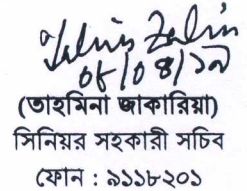 ০৮/০৪/১৯
(তাহমিনা জাকারিয়া)
সিনিয়র সহকারী সচিব
ফোন : ৯১১৮২০১